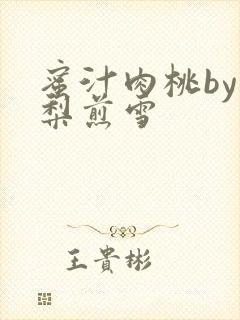 蜜汁肉桃by
梨煎雪
王貴彬